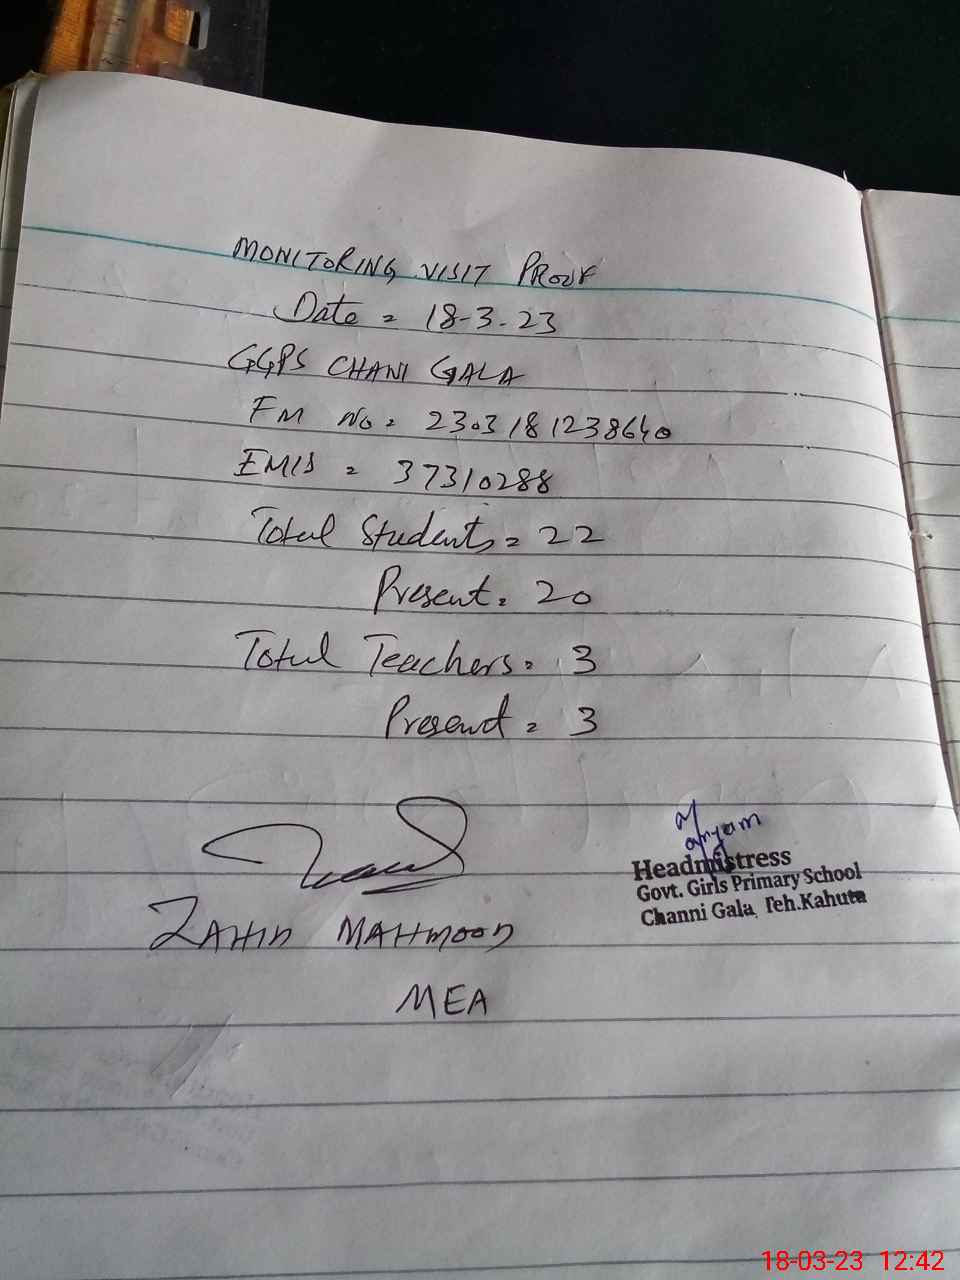 MONITORING VISIT PROOF
Date = 18-3-23
GGPS CHANI GALA
FM No = 2303181238640
EMIS = 37310288
Total Students = 22
Present = 20
Total Teachers = 3
Present = 3
Maryam
Headmistress
Govt. Girls Primary School
Channi Gala, Teh.Kahuta
ZAHID MAHMOOD
MEA
18-03-23 12:42